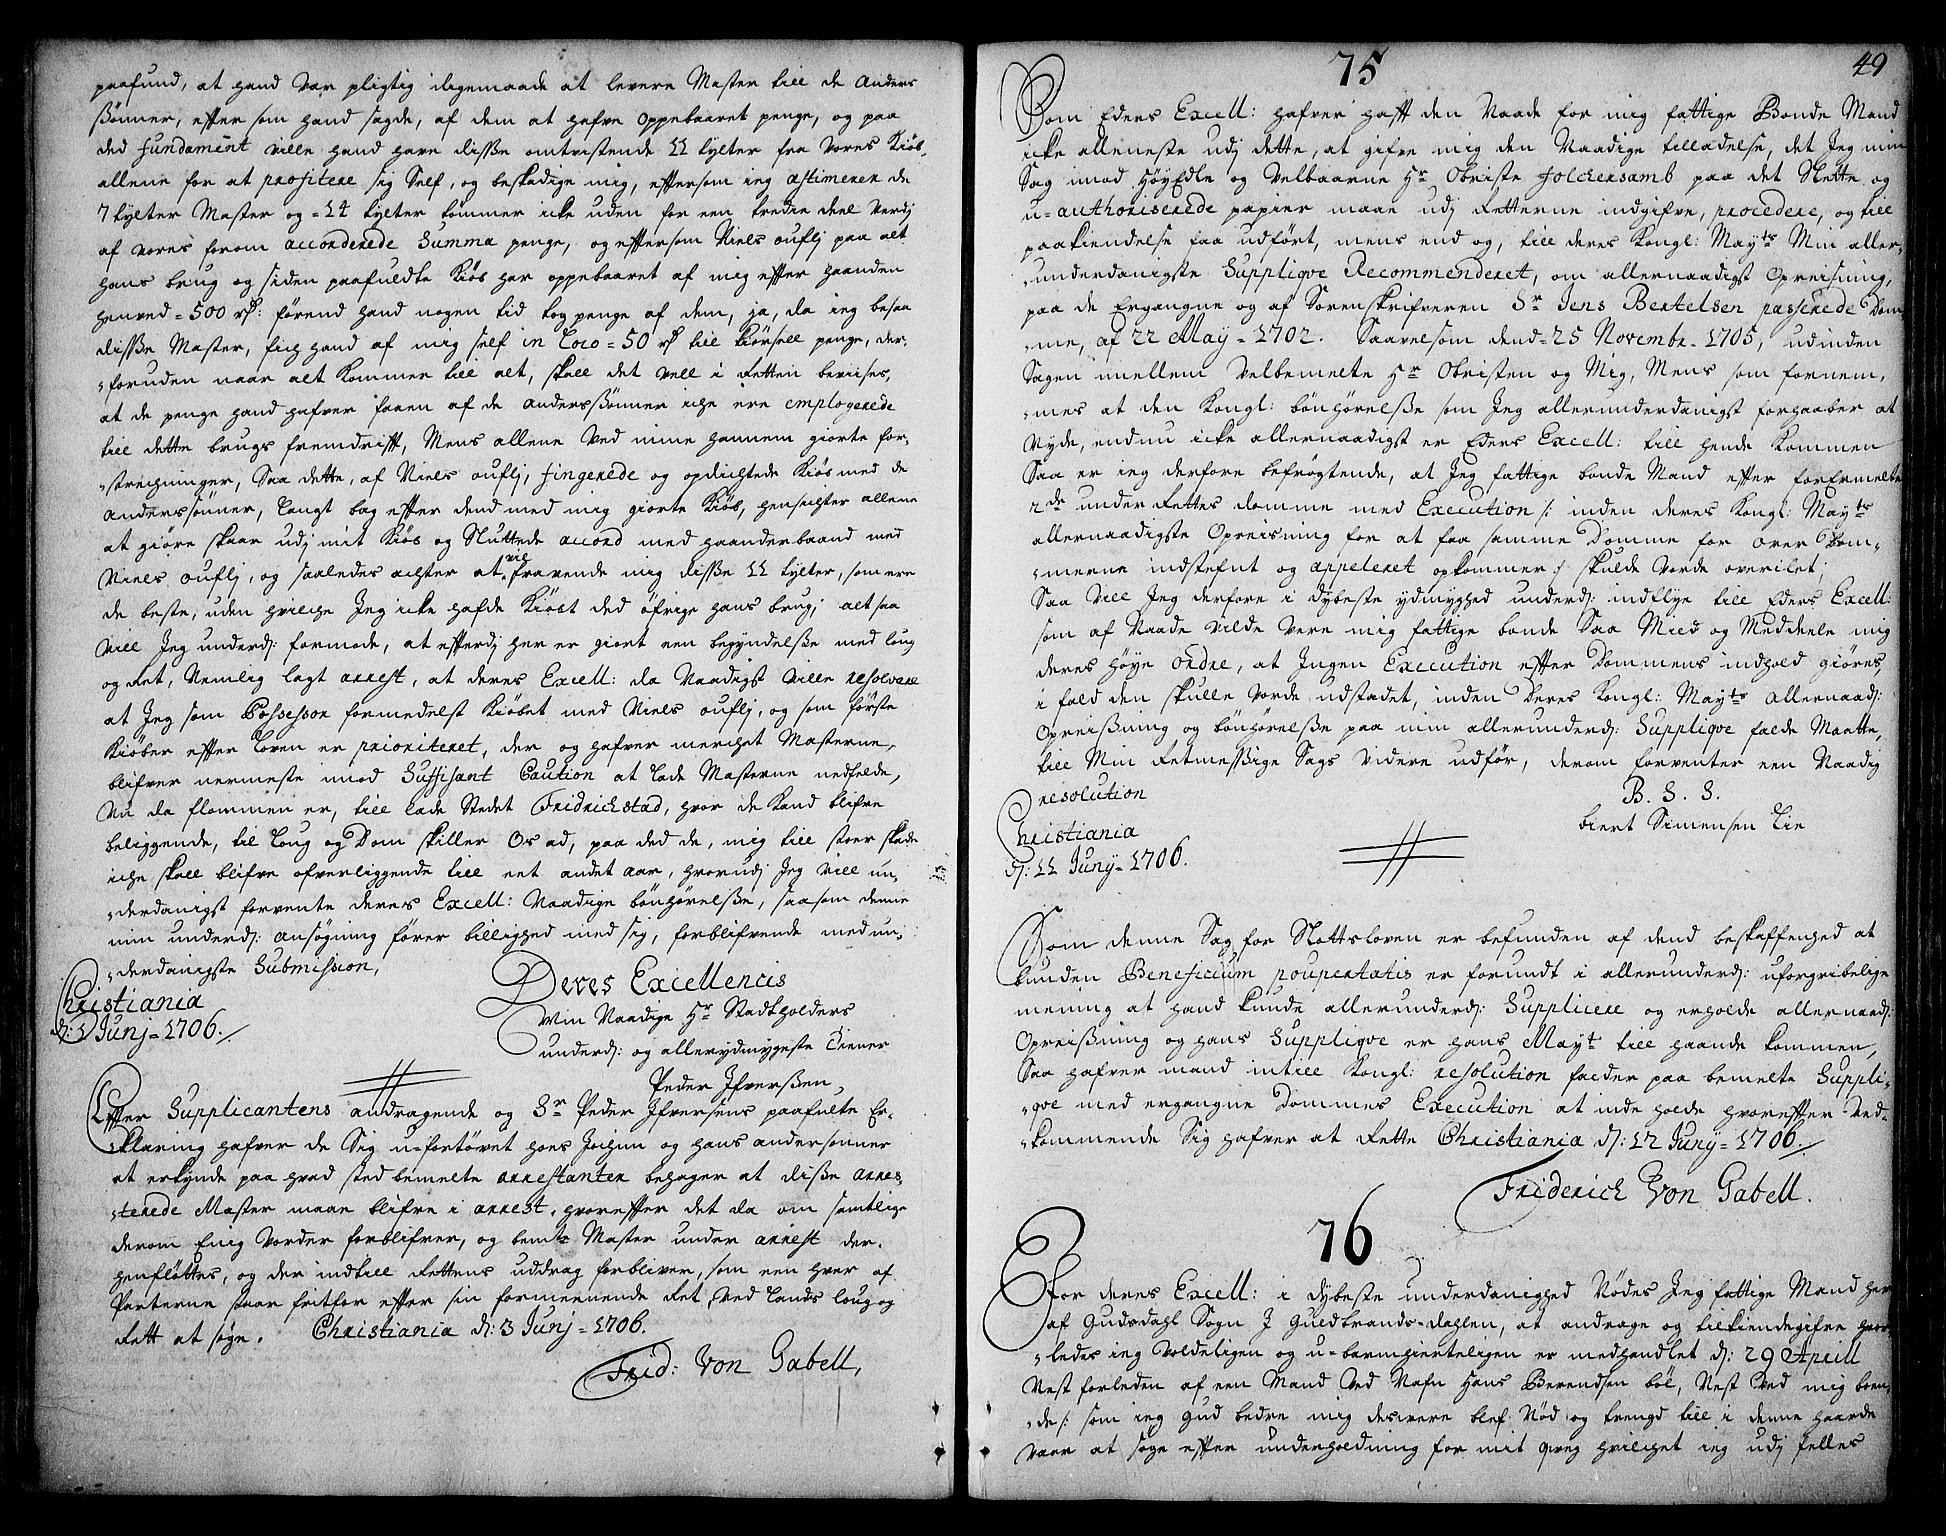 paafund, at hand var pligtig iligemaade at levere Master till de Anders
Sønner, effter som hand sagde, af dem at hafve oppebaaret penge, og paa
ded fundament ville hand have disse omtvistende 11 tylter fra vores Kiøb,
allene for at profitere sig Self, og beskadige mig, efftersom ieg æstimerer de
7 tylter Master og =14 tylter kommer icke uden for een tredie deel verdj
af vores forom accorderede Summa penge, og efftersom Niels oufli paa alt
hans brug og siden paafuldte Kiøb har oppebaaret af mig effter haanden
henved =500 rd: førend hand nogen tid tog penge af dem, ja, da ieg besaa
disse Master, fich hand af mig self in Loco =50 rd til kiørsell penge, der,
=foruden naar alt kommer till alt, skall det vell i Retten beviises,
at de penge hand hafver faaen af de Anderssønner iche ere employerede
till dette brugs fremdrifft, Mens allene ved mine hannem giorte for,
=strechninger, Saa dette, af Niels oufli, fingerede og opdichtede Kiøb med de
Anderssønner, langt bag effter dend med mig giorte Kiøb, hensichter allene
at giøre skaar udj mit Kiøb og Sluttede accord med haanderbaand med
Niels oufli, og saaledes achter at vil fravende mig disse 11 tylter, som ere
de beste, uden hvilche Jeg icke hafde Kiøbt ded øfrige hans brug; alt saa
vill Jeg underd: formode, at efferdj her er giort een begyndelsse med loug
og Ret, Nemlig lagt arrest, at deres Excell: da Naadigst ville resolvere
at Jeg som Possessor formedelst Kiøbet med Niels oufli, og som første
Kiøber effter Loven er prioriteret, der og hafver merchet Masterne,
blifver nermeste imod Suffisant Caution at lade Masterne nedfelde,
Nu da flommen er, till lade Stedet Fridrichstad, hvor de kand blifve
beliggende, til Loug og Dom skiller Os ad, paa ded de, mig till stoer skade
iche skall blifve ofverliggende till eet andet aar, hvorudj Jeg vill un,
=derdanigst forvente deres Excell: Naadige bønhørelsse, saasom denne
min underd: ansøgning fører billighed med sig, forblifvende med un,
=derdanigste Submission,
Deres Excellences
Christiania
Min Naadige Hr Stadtholders
d: 1 Junj =1706.
underd: og allerydmygeste tiener
Peder Ifverssen
Effter Supplicantens andragende og Sr Peder Ifversens paafulte Er,
=klaring hafver de Sig u=fortøvet hoes Jochim og hans andersønner
at erkynde paa hvad sted bemelte arrestanter behager at disse arres,
=terede Master maae blifve i arrest, hvoreffter det da om samtlige
derom Enig vorder forblifver, og bemte Master under arrest der,
henfløttes, og der indtill Rettens uddrag forbliver, som een hver af
Parterne staar fritfor effter sin formeenende Ret, ved Lands loug og
Rett at søge. Christiania d: 3 Junj =1706.
Frid: Von Gabell,
49
75
Som Eders Excell: hafver hafft den Naade for mig fattige Bonde Mand
icke alleneste udj dette, at gifve mig den Naadige tilladelse, det Jeg min
Sag imod HøyEdle og Velbaarne Hr Obriste folchersamb paa det Slette og
u=authoriserede papier maae udj Retterne indgifve, procedere, og till
paakiendelse faa udført, mens end og, till deres Kongl: Mayts Min aller,
=underdanigste Supplique Recommenderet, om allernaadigst Opreisning,
paa de Ergangne og af Sorenskrifveren Sr Jens Bertelsen passerede Dom,
=me, af 22 May =1702. Saavelsom dend =25 Novembr =1705, udinden
Sagen imellem velbemelte Hr Obristen og Mig, Mens som fornem,
=mes at den Kongl: bønhørelsse som Jeg allerunderdanigst forhaaber at
Nyde, endnu icke allernaadigst er Eders Excell: till hende kommen
Saa er ieg derfore befrøgtende, at Jeg fattige bonde Mand effter forErmelte
2de under Rettes domme med Execution /: inden deres Kongl: Mayts
allernaadigste Opreisning for at faa samme Domme for over dom,
=merne indstefnt og appeleret opkommer :/ skulde vorde overilet;
Saa vill Jeg derfore i dybeste ydmyghed underd: indflye till Eders Excell:
som af Naade vilde vere mig fattige bonde Saa Mied og Meddeele mig
deres høye ordre, at Ingen Execution effter Dommens indhold giøres,
i fald den skulle vorde udstædet, inden Deres Kongl: Mayts allernaad:
Opreisning og bønhørelsse paa min allerunderd: Supplique falde Maatte,
till Min Retmessige Sags videre udfør, derom forventer een Naadig
resolution
B. S. S.
Christiania
biert Simensen Lie
d: 11 Junÿ =1706.
Som denne Sag for Slottsloven er befunden af dend beskaffenhed at
bunden Beneficium poupertatis er forundt i allerunderd: uforgribelige
mening at hand kunde allerunderd: Supplicere og erholde allernaad:
Opreisning og hans Supplique er hans Mayt till haande kommen,
Saa hafver mand intill Kongl: resolution falder paa bemelte Suppli,
=que med ergangne Dommes Execution at inde holde hvoreffter Ved=
=kommende Sig hafver at Rette Christiania d: 12 Junÿ =1706.
Friderich Von Gabell.
76
For deres Excell: i dybeste underdanighed Nødes Jeg fattige Mand her
af Gudsdahl Sogn J Guldbrands=dahlen, at andrage og tilkiendegifve hvor,
=ledes ieg Voldeligen og u=barmhierteligen er medhandlet d: 29 Aprill
Nest forleden af een Mand ved Nafn Hans Berendsen böe, Nest ved mig boen,
=de /: som ieg Gud bedre mig desvere blef Nød og trengd till i denne haarde
vaar at søge effter underholdning for mit qveg hvilchet ieg udj felles